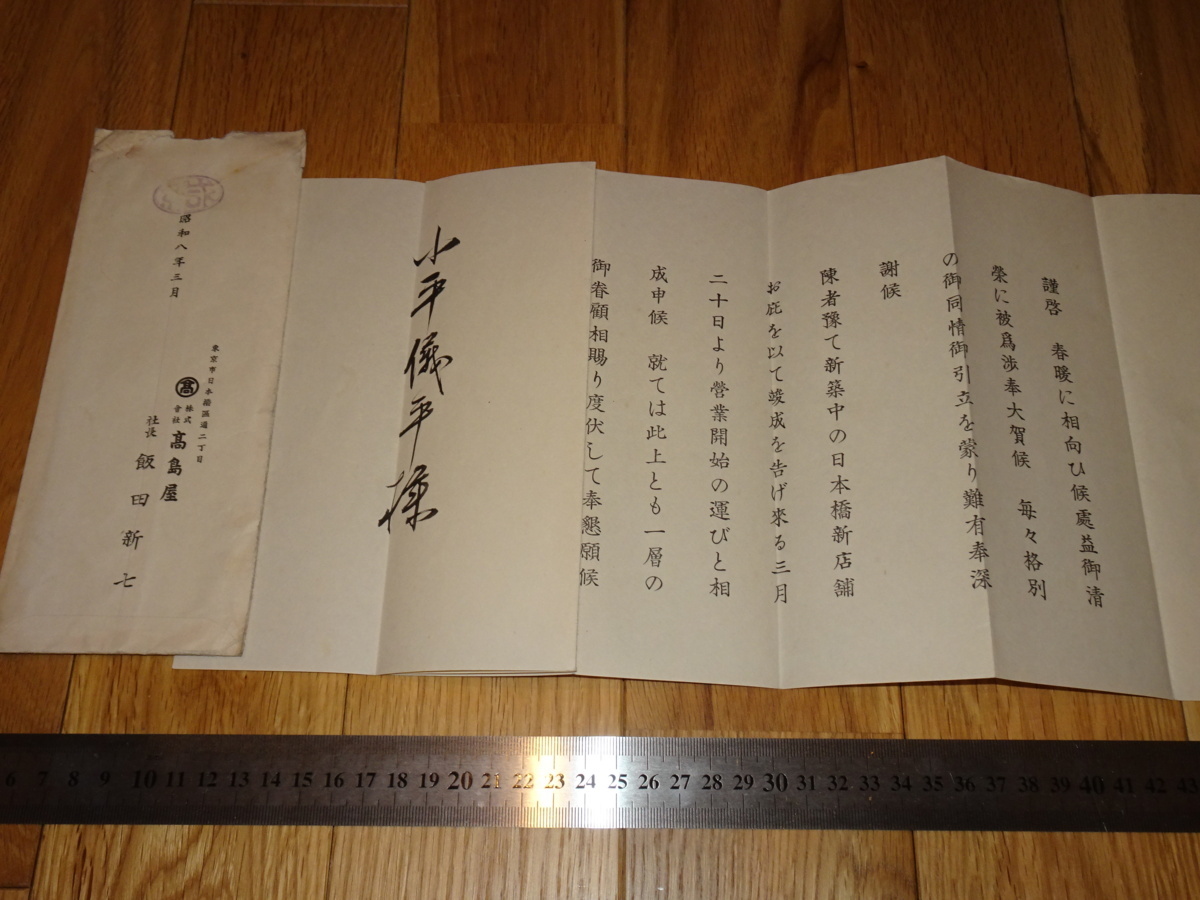 謹啓 春暖に相向ひ候處益御清
榮に被爲渉奉大賀候 毎々格別
の御同情御引立を蒙り難有奉深
謝候
陳者豫て新築中の日本橋新店舗
お庇を以て竣成を告げ來る三月
二十日より營業開始の運びと相
成申候 就ては此上とも一層の
御眷顧相賜り度伏して奉懇願候
小平儀平様
昭和八年三月
東京市日本橋區通二丁目
髙
株式會社 髙島屋
社長 飯田新七
6 7 8 9 10 11 12 13 14 15 16 17 18 19 20 21 22 23 24 25 26 27 28 29 30 31 32 33 34 35 36 37 38 39 40 41 42 43